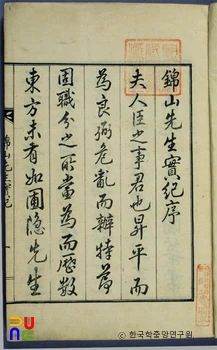 錦山先生實紀序
夫人臣之事君也昇平而
為良弼危亂而辦特節
固職分之所當為而歷數
東方未有如圃隱先生
錦山先生實紀
한국학중앙연구원